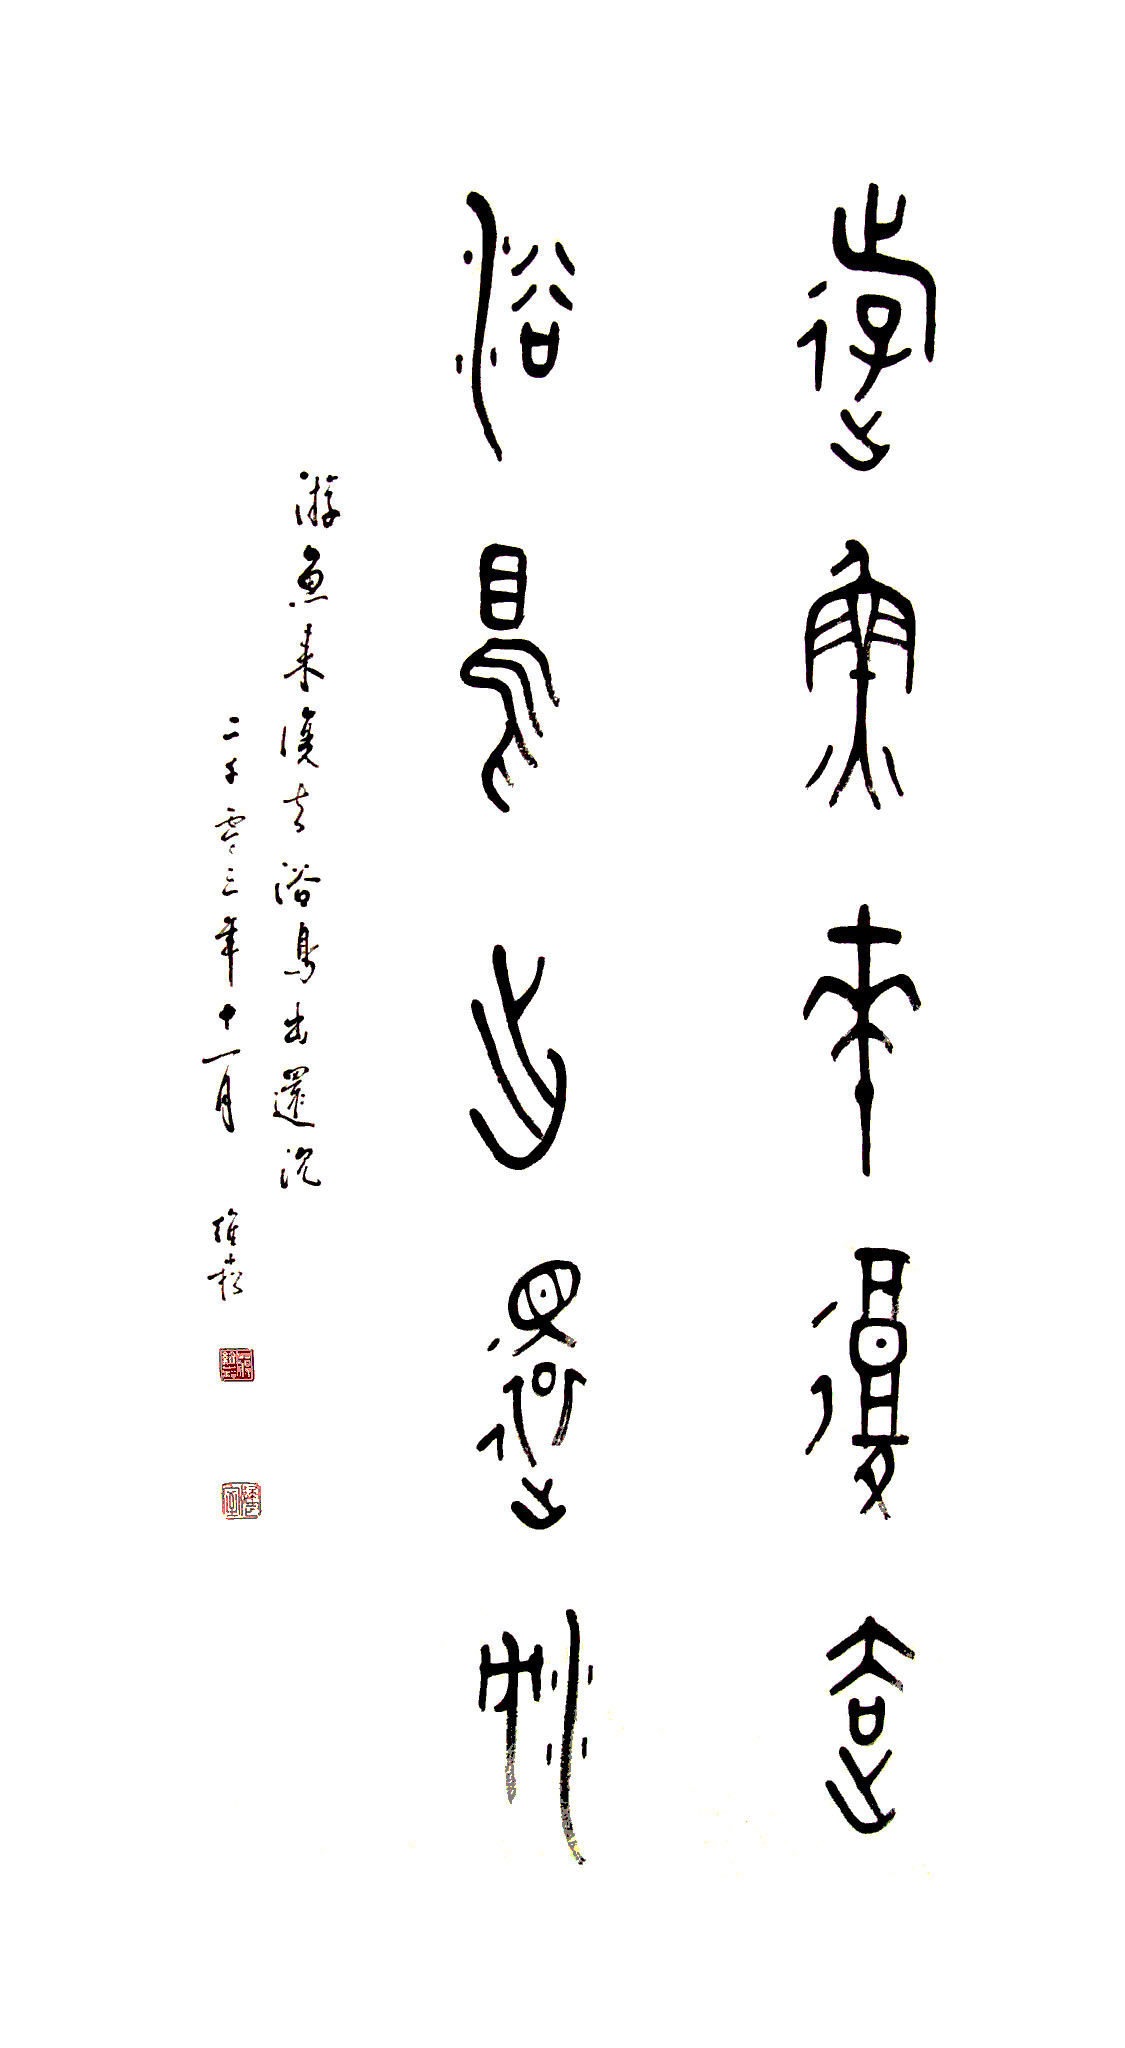 游魚來復去
浴鳥出還沉
游魚來復去浴鳥出還沉
二千零三年十一月 維崧